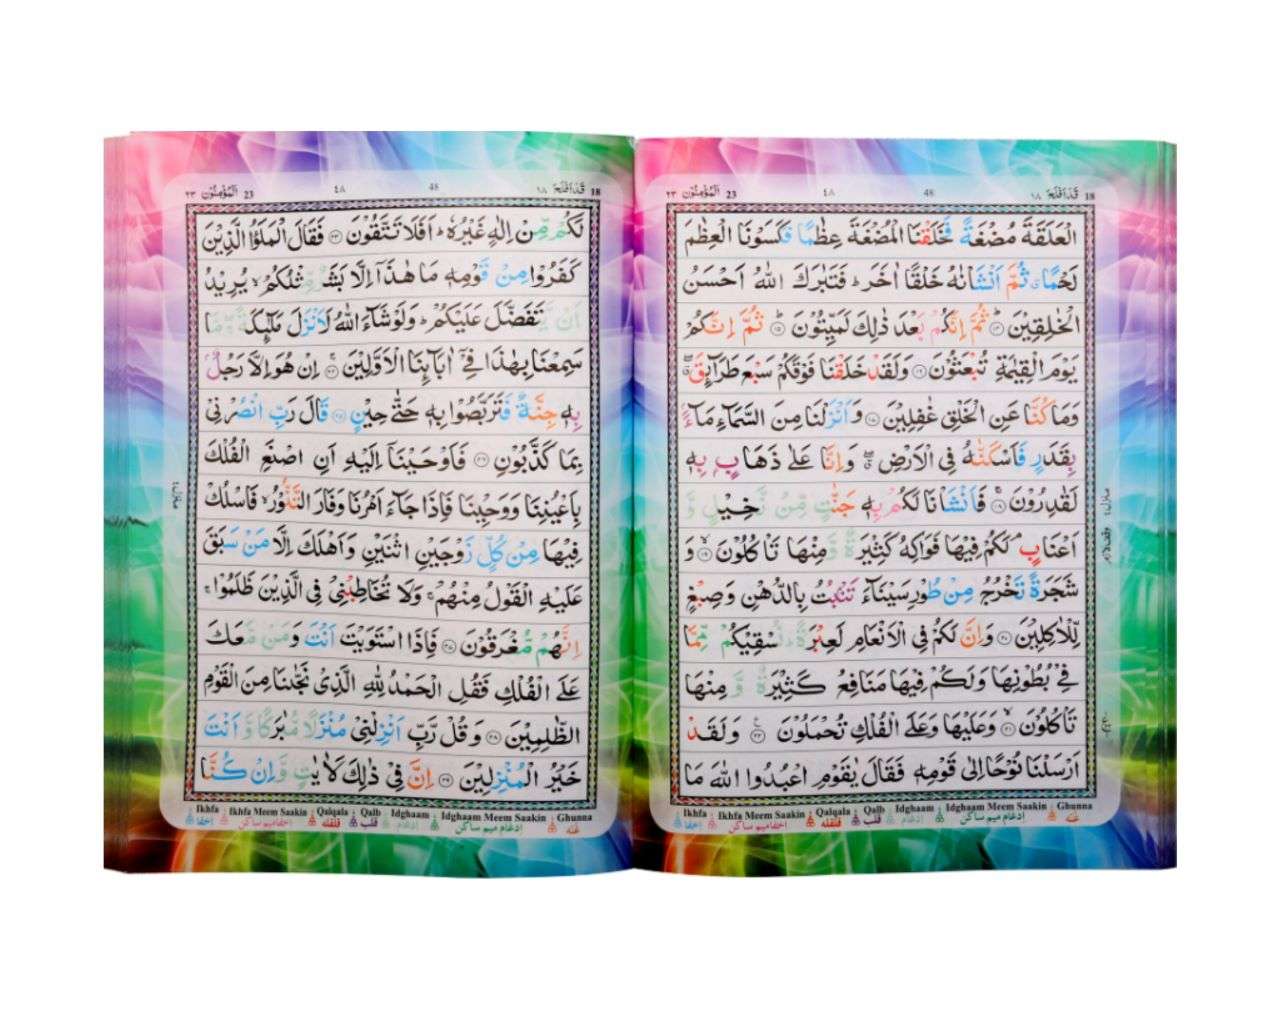 قَدْاَفْلَحَ ١٨ 18 48 ٤٨ اَلْمُؤْمِنُوْن ٢٣ 23
الْعَلَقَةَ مُضْغَةً فَخَلَقْنَا الْمُضْغَةَ عِظٰمًا فَكَسَوْنَا الْعِظٰمَ
لَحْمًا ۗ ثُمَّ اَنْشَاْنٰهُ خَلْقًا اٰخَرَ ؕ فَتَبٰرَكَ اللّٰهُ اَحْسَنُ
الْخٰلِقِيْنَ ۝١٤ ثُمَّ اِنَّكُمْ بَعْدَ ذٰلِكَ لَمَيِّتُوْنَ ۝١٥ ثُمَّ اِنَّكُمْ
يَوْمَ الْقِيٰمَةِ تُبْعَثُوْنَ ۝١٦ وَلَقَدْ خَلَقْنَا فَوْقَكُمْ سَبْعَ طَرَآئِقَ ۖ
وَمَا كُنَّا عَنِ الْخَلْقِ غٰفِلِيْنَ ۝١٧ وَاَنْزَلْنَا مِنَ السَّمَآءِ مَآءًۢ
بِقَدَرٍ فَاَسْكَنّٰهُ فِي الْاَرْضِ ۖ وَاِنَّا عَلٰى ذَهَابٍۭ بِهٖ
لَقٰدِرُوْنَ ۝١٨ فَاَنْشَاْنَا لَكُمْ بِهٖ جَنّٰتٍ مِّنْ نَّخِيْلٍ وَّ
اَعْنَابٍ ۘ لَكُمْ فِيْهَا فَوَاكِهُ كَثِيْرَةٌ وَّ مِنْهَا تَاْكُلُوْنَ ۝١٩ وَ
شَجَرَةً تَخْرُجُ مِنْ طُوْرِ سَيْنَآءَ تَنْۢبُتُ بِالدُّهْنِ وَصِبْغٍ
لِّلْاٰكِلِيْنَ ۝٢٠ وَاِنَّ لَكُمْ فِي الْاَنْعَامِ لَعِبْرَةً ؕ نُسْقِيْكُمْ مِّمَّا
فِيْ بُطُوْنِهَا وَلَكُمْ فِيْهَا مَنَافِعُ كَثِيْرَةٌ وَّ مِنْهَا
تَاْكُلُوْنَ ۝٢١ وَعَلَيْهَا وَعَلَى الْفُلْكِ تُحْمَلُوْنَ ۝٢٢ وَلَقَدْ
اَرْسَلْنَا نُوْحًا اِلٰى قَوْمِهٖ فَقَالَ يٰقَوْمِ اعْبُدُوا اللّٰهَ مَا
Ikhfa Ikhfa Meem Saakin Qalqala Qalb Idghaam Idghaam Meem Saakin Ghunna
اخفا اخفا میم ساکن قلقلہ قلب ادغام ادغام میم ساکن غنہ
قَدْاَفْلَحَ ١٨ 18 48 ٤٨ اَلْمُؤْمِنُوْن ٢٣ 23
لَكُمْ مِّنْ اِلٰهٍ غَيْرُهٗ ؕ اَفَلَا تَتَّقُوْنَ ۝٢٣ فَقَالَ الْمَلَؤُا الَّذِيْنَ
كَفَرُوْا مِنْ قَوْمِهٖ مَا هٰذَآ اِلَّا بَشَرٌ مِّثْلُكُمْ ۙ يُرِيْدُ
اَنْ يَّتَفَضَّلَ عَلَيْكُمْ ؕ وَلَوْ شَآءَ اللّٰهُ لَاَنْزَلَ مَلٰٓئِكَةً ۖۚ مَّا
سَمِعْنَا بِهٰذَا فِيْٓ اٰبَآئِنَا الْاَوَّلِيْنَ ۝٢٤ اِنْ هُوَ اِلَّا رَجُلٌۢ
بِهٖ جِنَّةٌ فَتَرَبَّصُوْا بِهٖ حَتّٰى حِيْنٍ ۝٢٥ قَالَ رَبِّ انْصُرْنِيْ
بِمَا كَذَّبُوْنِ ۝٢٦ فَاَوْحَيْنَآ اِلَيْهِ اَنِ اصْنَعِ الْفُلْكَ
بِاَعْيُنِنَا وَوَحْيِنَا فَاِذَا جَآءَ اَمْرُنَا وَفَارَ التَّنُّوْرُ ۙ فَاسْلُكْ
فِيْهَا مِنْ كُلٍّ زَوْجَيْنِ اثْنَيْنِ وَاَهْلَكَ اِلَّا مَنْ سَبَقَ
عَلَيْهِ الْقَوْلُ مِنْهُمْ ۚ وَلَا تُخَاطِبْنِيْ فِي الَّذِيْنَ ظَلَمُوْا ۚ
اِنَّهُمْ مُّغْرَقُوْنَ ۝٢٧ فَاِذَا اسْتَوَيْتَ اَنْتَ وَمَنْ مَّعَكَ
عَلَى الْفُلْكِ فَقُلِ الْحَمْدُ لِلّٰهِ الَّذِيْ نَجّٰىنَا مِنَ الْقَوْمِ
الظّٰلِمِيْنَ ۝٢٨ وَقُلْ رَّبِّ اَنْزِلْنِيْ مُنْزَلًا مُّبٰرَكًا وَّاَنْتَ
خَيْرُ الْمُنْزِلِيْنَ ۝٢٩ اِنَّ فِيْ ذٰلِكَ لَاٰيٰتٍ وَّاِنْ كُنَّا
Ikhfa Ikhfa Meem Saakin Qalqala Qalb Idghaam Idghaam Meem Saakin Ghunna
اخفا اخفا میم ساکن قلقلہ قلب ادغام ادغام میم ساکن غنہ